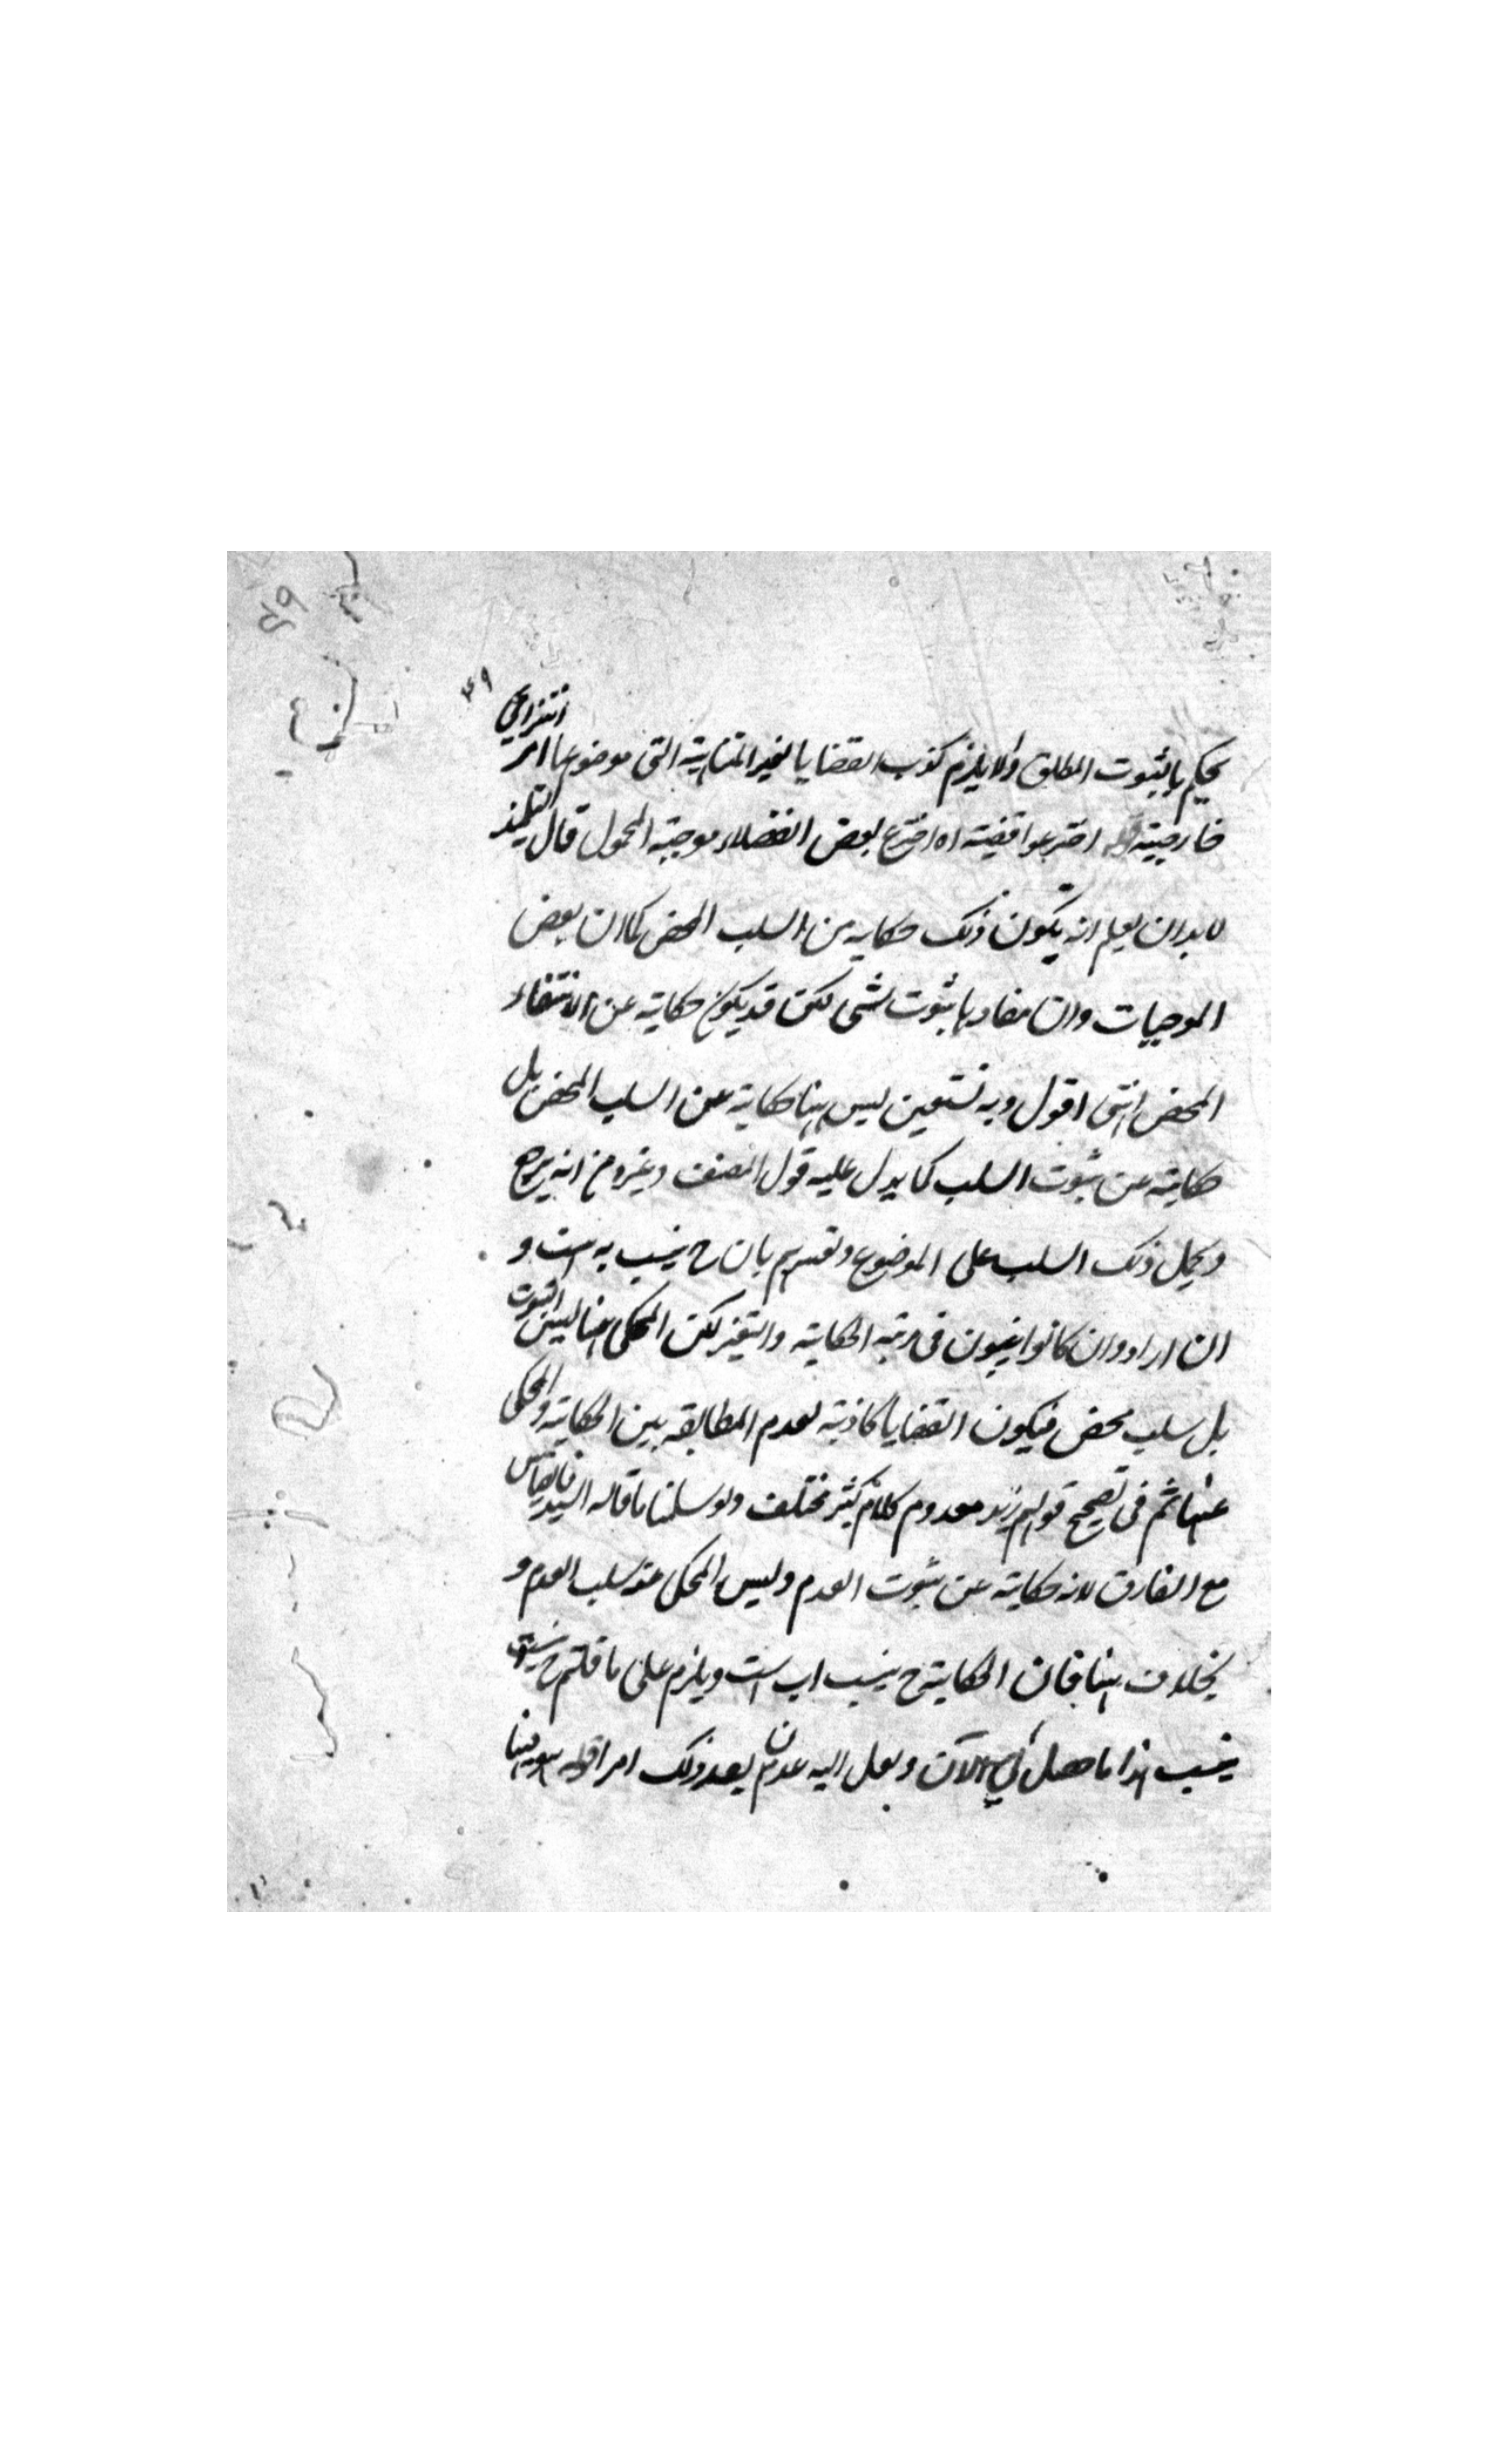 ۴۹
يحكم بالثبوت المطلق والا يلزم كذب القضايا الغير المتناهية التي موضوعها امر انتزاعي
خارجية قوله اخترعوا قضية اه اخترع بعض الفضلاء موجبة المحمول قال التلميذ
لا بد ان يعلم انه يكون ذلك حكاية من السلب المحض كما ان بعض
الموجبات وان مفادها ثبوت شي لكن قد يكون حكاية عن الانتفاء
المحض انتهى اقول وبه نستعين ليس ههنا حكاية عن السلب المحض بل
حكاية عن ثبوت السلب كما يدل عليه قول المصنف وغيره من انه يرجع
ويحمل ذلك السلب على الموضوع وتفسيرهم بان ح يسب به است و
ان اراد وان كانوا في رتبة الحكاية لكن المحكى عنها ليس الثبوت
بل سلب محض فيكون القضايا كاذبة لعدم المطابقة بين الحكاية والمحكى
عنها ثم في تصحيح قولهم زيد معدوم كلام كثير مختلف ولو سلمنا ما قاله السيد فالقياس
مع الفارق لانه حكاية عن ثبوت العدم وليس المحكى عنه سلب العدم و
بخلاف ههنا فان الحكاية ح است ويلزم على ما قلتم ح
هذا ما حصل لي الآن ولعل الله يحدث بعد ذلك امرا قوله ههنا